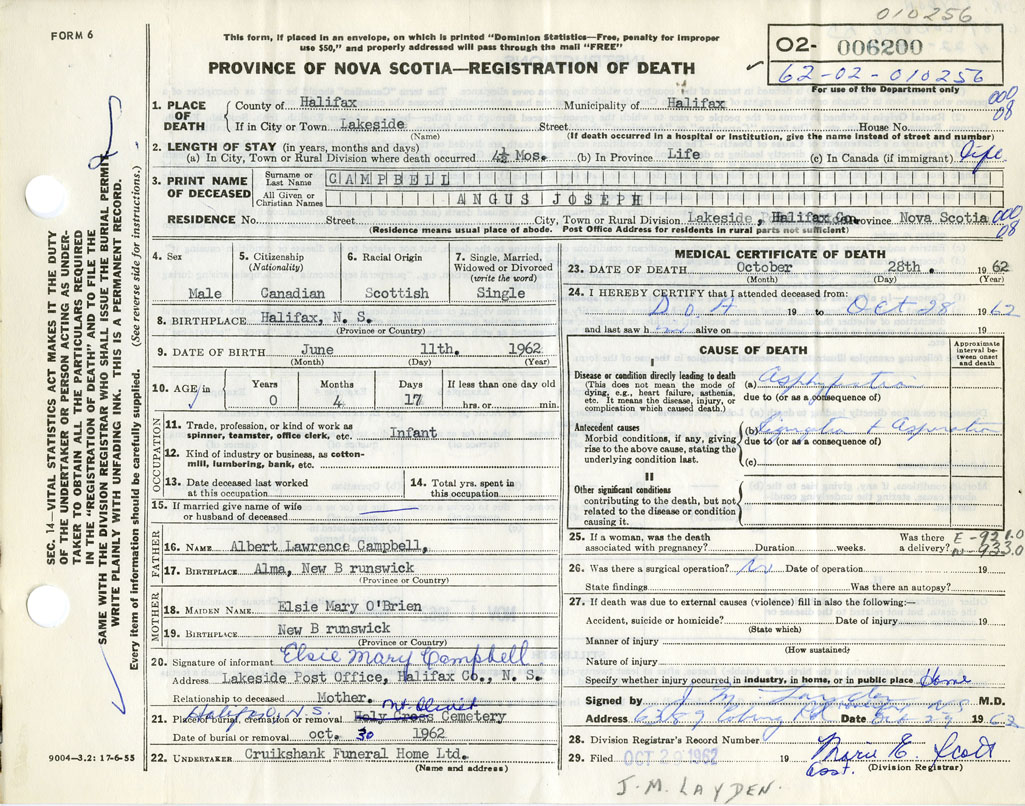 010256
FORM 6
This form, if placed in an envelope, on which is printed "Dominion Statistics—Free, penalty for improper
use $50," and properly addressed will pass through the mail "FREE"
PROVINCE OF NOVA SCOTIA—REGISTRATION OF DEATH
02- 006200
62-02-010256
For use of the Department only
1. PLACE OF DEATH
County of Halifax Municipality of Halifax 000
If in City or Town Lakeside Street House No. 08
(Name) (If death occurred in a hospital or institution, give the name instead of street and number)
2. LENGTH OF STAY (in years, months and days)
(a) In City, Town or Rural Division where death occurred 4½ Mos. (b) In Province Life (c) In Canada (if immigrant) life
3. PRINT NAME OF DECEASED
Surname or Last Name CAMPBELL
All Given or Christian Names ANGUS JOSEPH
RESIDENCE No. Street City, Town or Rural Division Lakeside, Halifax Co. Province Nova Scotia 000
(Residence means usual place of abode. Post Office Address for residents in rural parts not sufficient) 08
4. Sex Male
5. Citizenship (Nationality) Canadian
6. Racial Origin Scottish
7. Single, Married, Widowed or Divorced (write the word) Single
8. BIRTHPLACE Halifax, N. S.
(Province or Country)
9. DATE OF BIRTH June 11th. 1962
(Month) (Day) (Year)
10. AGE in Years 0 Months 4 Days 17 If less than one day old hrs. or min.
OCCUPATION
11. Trade, profession, or kind of work as spinner, teamster, office clerk, etc. Infant
12. Kind of industry or business, as cotton-mill, lumbering, bank, etc.
13. Date deceased last worked at this occupation
14. Total yrs. spent in this occupation
15. If married give name of wife or husband of deceased
FATHER
16. NAME Albert Lawrence Campbell,
17. BIRTHPLACE Alma, New B runswick
(Province or Country)
MOTHER
18. MAIDEN NAME Elsie Mary O'Brien
19. BIRTHPLACE New B runswick
(Province or Country)
20. Signature of informant Elsie Mary Campbell
Address Lakeside Post Office, Halifax Co., N. S.
Relationship to deceased Mother.
Halifax, N.S. Mt. Olivet
21. Place of burial, cremation or removal Holy Cross Cemetery
Date of burial or removal oct. 30 1962
22. UNDERTAKER Cruikshank Funeral Home Ltd.
(Name and address)
MEDICAL CERTIFICATE OF DEATH
23. DATE OF DEATH October 28th. 1962
(Month) (Day) (Year)
24. I HEREBY CERTIFY that I attended deceased from:
D.O.A 19 to Oct 28 1962
and last saw h alive on 19
CAUSE OF DEATH
Approximate interval between onset and death
I
Disease or condition directly leading to death
(This does not mean the mode of dying, e.g., heart failure, asthenia, etc. It means the disease, injury, or complication which caused death.)
(a)
due to (or as a consequence of)
Antecedent causes
Morbid conditions, if any, giving rise to the above cause, stating the underlying condition last.
(b) + Aspiration
due to (or as a consequence of)
(c)
II
Other significant conditions
contributing to the death, but not related to the disease or condition causing it.
25. If a woman, was the death associated with pregnancy? Duration weeks. Was there a delivery?
E-921.0
N-933.0
26. Was there a surgical operation? No Date of operation 19
State findings Was there an autopsy?
27. If death was due to external causes (violence) fill in also the following:—
Accident, suicide or homicide? Date of injury 19
(State which)
Manner of injury
(How sustained)
Nature of injury
Specify whether injury occurred in industry, in home, or in public place Home
Signed by J M Layden M.D.
Address 6389 Coburg Rd N.S Date Oct 29 1962
28. Division Registrar's Record Number
29. Filed OCT 29 1962 19 Marie E. Scott
Asst. (Division Registrar)
J. M. LAYDEN.
SEC. 14—VITAL STATISTICS ACT MAKES IT THE DUTY
OF THE UNDERTAKER OR PERSON ACTING AS UNDER-
TAKER TO OBTAIN ALL THE PARTICULARS REQUIRED
IN THE "REGISTRATION OF DEATH" AND TO FILE THE
SAME WITH THE DIVISION REGISTRAR WHO SHALL ISSUE THE BURIAL PERMIT
WRITE PLAINLY WITH UNFADING INK. THIS IS A PERMANENT RECORD.
Every item of information should be carefully supplied. (See reverse side for instructions.)
9004—3.2: 17-6-55